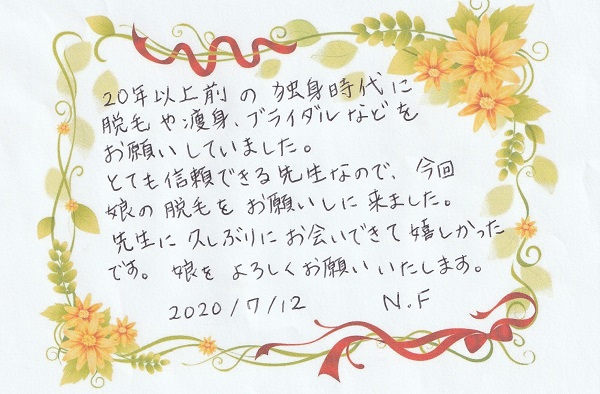 20年以上前の独身時代に
脱毛や痩身、ブライダルなどを
お願いしていました。
とても信頼できる先生なので、今回
娘の脱毛をお願いしに来ました。
先生に久しぶりにお会いできて嬉しかった
です。娘をよろしくお願いいたします。
2020/7/12 N.F